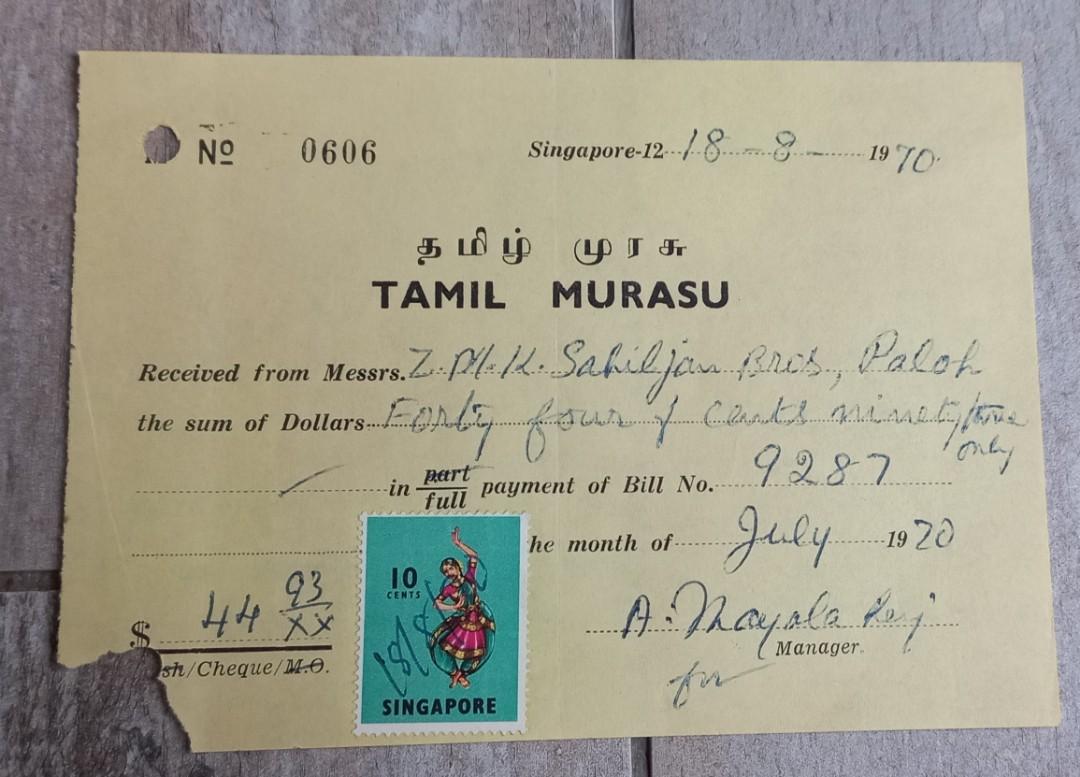 Nº 0606 Singapore-12 18-8- 1970
தமிழ் முரசு
TAMIL MURASU
Received from Messrs. Z.M.K. Sahiljan Bros, Paloh
the sum of Dollars Forty four & cents ninety three only
in part/full payment of Bill No. 9287
he month of July 1970
$ 44 93/xx
sh/Cheque/M.O.
10
CENTS
18/8/
SINGAPORE
A.
Manager.
for